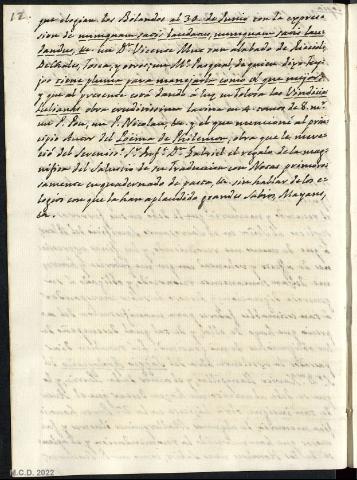 12.
que elogian los Bolandos al 30. de Junio con la expresion
sion de nunquam satis laudatus, nunquam satis laudandus
dandus, &c. un Dn. Vicente Mut tan alabado de Riccioli,
Dechales, Tosca, y otros; un Mn. Pasqual, de quien dixo Feyjo
joo tiene pluma para manejarlo como el que mejor,
y que al presente está dando á luz en Toledo las Vindicias
Lulianas obra eruditissima latina en 4. tomos de 8. mr.
un P. Pou, un P. Nicolau, &a. y el que mencioné al principio
cipio Autor del Poema de Philemon, obra que le mereció
ció del Serenis.º Sr. Inft.e Dn. Gabriel el regalo de la magnifica
nifica del Salustio de su Traduccion con Notas primorosamente
samente enquadernado de pasta, &c. sin hablar de los elogios
logios con que la han aplaudido grandes Sabios, Mayans,
&a.
M.C.D. 2022